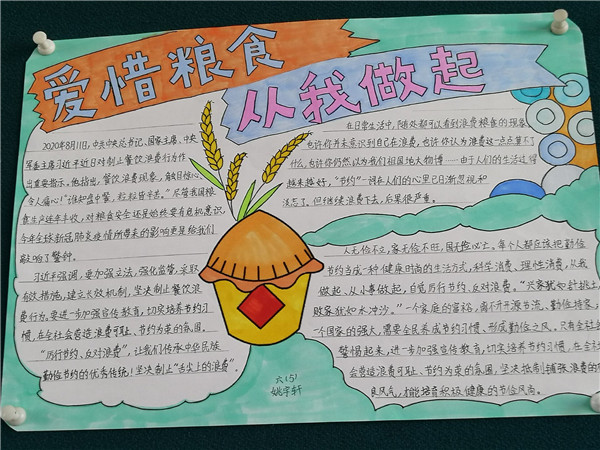 爱惜粮食
从我做起
2020年8月11日,中共中央总书记、国家主席、中央
军委主席习近平近日对制止餐饮浪费行为作
出重要指示。他指出,餐饮浪费现象,触目惊心、
令人痛心!"谁知盘中餐,粒粒皆辛苦。"尽管我国粮
食生产连年丰收,对粮食安全还是始终要有危机意识,
今年全球新冠肺炎疫情所带来的影响更是给我们
敲响了警钟。
习近平强调,要加强立法,强化监管,采取
有效措施,建立长效机制,坚决制止餐饮浪
费行为。要进一步加强宣传教育,切实培养节约习
惯,在全社会营造浪费可耻、节约为荣的氛围。
"厉行节约、反对浪费",让我们传承中华民族
勤俭节约的优秀传统!坚决制止"舌尖上的浪费"。
在日常生活中,随处都可以看到浪费粮食的现象。
也许你并未意识到自己在浪费,也许你认为浪费这一点点算不了
什么,也许你仍然以为我们祖国地大物博……由于人们的生活过得
越来越好,"节约"一词在人们的心里已日渐忽视和
淡忘了。但继续浪费下去,后果很严重。
人无俭不立,家无俭不旺,国无俭必亡。每个人都应该把勤俭
节约当成一种健康时尚的生活方式,科学消费、理性消费,从我
做起、从小事做起,自觉厉行节约、反对浪费。"兴家犹如针挑土,
败家犹如水冲沙。"一个家庭的富裕,离不开开源节流、勤俭持家;
一个国家的强大,需要全民养成节约习惯、形成勤俭之风。只有全社会
警惕起来,进一步加强宣传教育,切实培养节约习惯,在全社
会营造浪费可耻、节约为荣的氛围,坚决抵制铺张浪费的
良风气,才能培育积极健康的节俭风尚。
六(5)
姚宇轩